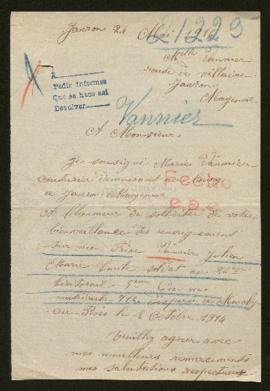 Javron 24 Mai 1915
21229
Melle Vannier
route de villaine
Javron
Mayenne
A
Pedir Informes
Que se haga así
Devolver
Vannier
A Monsieur
Je soussigné Marie Vannier
couturière demeurant
a Javron Mayenne
Fecho
A l'honneur de solliciter de votre
bienveillance des renseignements
sur mon Frère Vannier Julien
Marie Emile soldat au 26me
territorial 7me Cie
matricule 772 disparu a Monchy
au Bois le 8 Octobre 1914
Veuillez agréer avec
mes meilleurs remerciements
mes salutations respectueuses